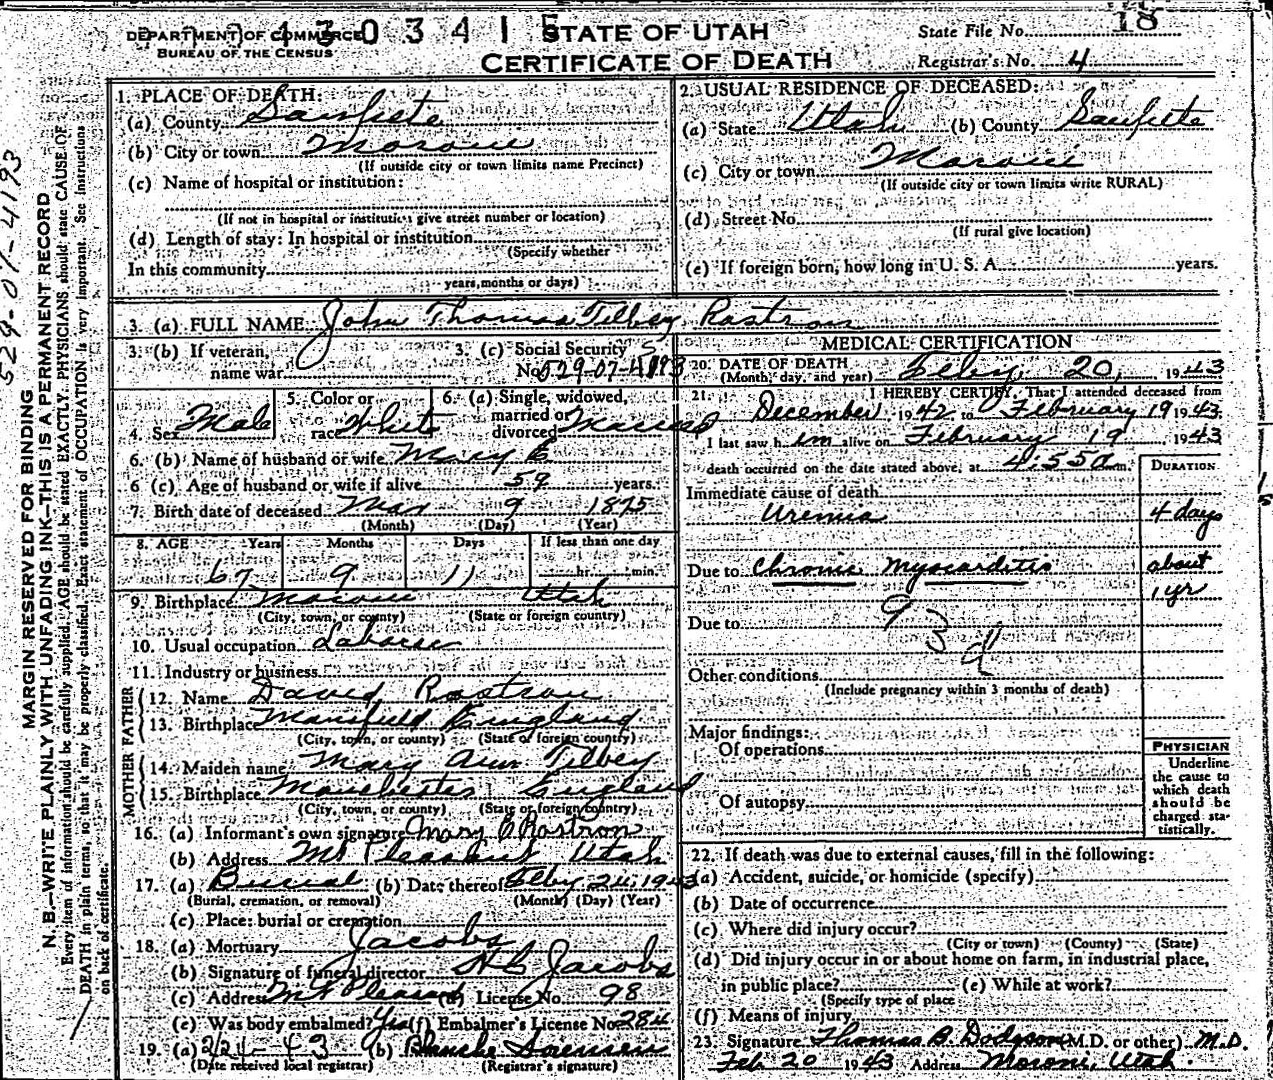 DEPARTMENT OF COMMERCE
BUREAU OF THE CENSUS
STATE OF UTAH
CERTIFICATE OF DEATH
State File No. 18
Registrar's No. 4
MARGIN RESERVED FOR BINDING
N. B.—WRITE PLAINLY WITH UNFADING INK—THIS IS A PERMANENT RECORD
Every item of information should be carefully supplied. AGE should be stated EXACTLY. PHYSICIANS should state CAUSE OF
DEATH in plain terms, so that it may be properly classified. Exact statement of OCCUPATION is very important. See instructions
on back of certificate.
529-07-4193
1. PLACE OF DEATH:
(a) County Sanpete
(b) City or town Moroni
(If outside city or town limits name Precinct)
(c) Name of hospital or institution:
(If not in hospital or institution give street number or location)
(d) Length of stay: In hospital or institution
(Specify whether
In this community
years, months or days)
2. USUAL RESIDENCE OF DECEASED:
(a) State Utah (b) County Sanpete
(c) City or town Moroni
(If outside city or town limits write RURAL)
(d) Street No.
(If rural give location)
(e) If foreign born, how long in U. S. A. years.
3. (a) FULL NAME John Thomas Tilbey Rostron
3. (b) If veteran,
name war
3. (c) Social Security
No. 529-07-4193
4. Sex Male
5. Color or
race White
6. (a) Single, widowed,
married or
divorced Married
6. (b) Name of husband or wife Mary E
6 (c) Age of husband or wife if alive 59 years.
7. Birth date of deceased Mar 9 1875
(Month) (Day) (Year)
8. AGE Years Months Days If less than one day
67 9 11 hr. min.
9. Birthplace Moroni Utah
(City, town, or county) (State or foreign country)
10. Usual occupation Laborer
11. Industry or business
FATHER
12. Name David Rostron
13. Birthplace Mansfield England
(City, town, or county) (State or foreign country)
MOTHER
14. Maiden name Mary Ann Tilbey
15. Birthplace Manchester England
(City, town, or county) (State or foreign country)
16. (a) Informant's own signature Mary E Rostron
(b) Address Mt Pleasant, Utah
17. (a) Burial (b) Date thereof Feby 24, 1943
(Burial, cremation, or removal) (Month) (Day) (Year)
(c) Place: burial or cremation
18. (a) Mortuary Jacobs
(b) Signature of funeral director H C Jacobs
(c) Address Mt Pleasant (d) License No. 98
(e) Was body embalmed? Yes (f) Embalmer's License No. 284
19. (a) 2/24-43 (b) Blanche Sorensen
(Date received local registrar) (Registrar's signature)
MEDICAL CERTIFICATION
20. DATE OF DEATH Feby 20, 1943
(Month, day, and year)
21. I HEREBY CERTIFY, That I attended deceased from
December 1942, to February 19 1943,
I last saw him alive on February 19, 1943
death occurred on the date stated above, at 4:55 a m.
DURATION
Immediate cause of death
Uremia 4 days
Due to Chronic Myocarditis about
1 yr
Due to
93 d
Other conditions
(Include pregnancy within 3 months of death)
Major findings:
Of operations
Of autopsy
PHYSICIAN
Underline
the cause to
which death
should be
charged sta-
tistically.
22. If death was due to external causes, fill in the following:
(a) Accident, suicide, or homicide (specify)
(b) Date of occurrence
(c) Where did injury occur?
(City or town) (County) (State)
(d) Did injury occur in or about home on farm, in industrial place,
in public place? (e) While at work?
(Specify type of place
(f) Means of injury
23. Signature Thomas B. Dodgson (M.D. or other) M.D.
Feb 20 1943 Address Moroni, Utah.